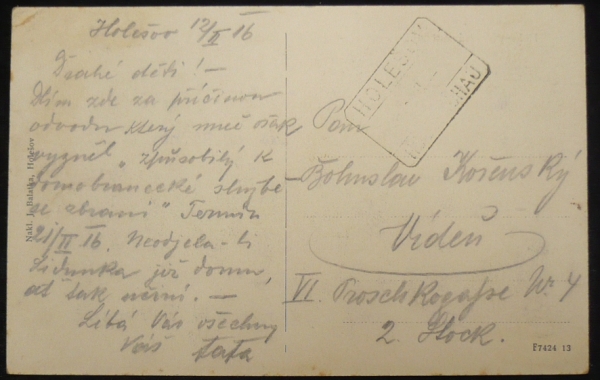 Holešov 12/II 16
Drahé děti! —
Dlím zde za příčinou
odvodu který mně však
vyzněl „způsobilý k
domobranecké službe
se zbraní" Termín
21/II 16. Neodjela-li
Lidunka již domu,
ať tak učiní. —
Líbá Vás všechny
Váš tata
Nakl. J. Balatka, Holešov
HOLEŠOV
Pan
Bohuslav Košenský
Vídeň
VI. Proschkogasse Nr. 4
2. Stock.
F7424 13